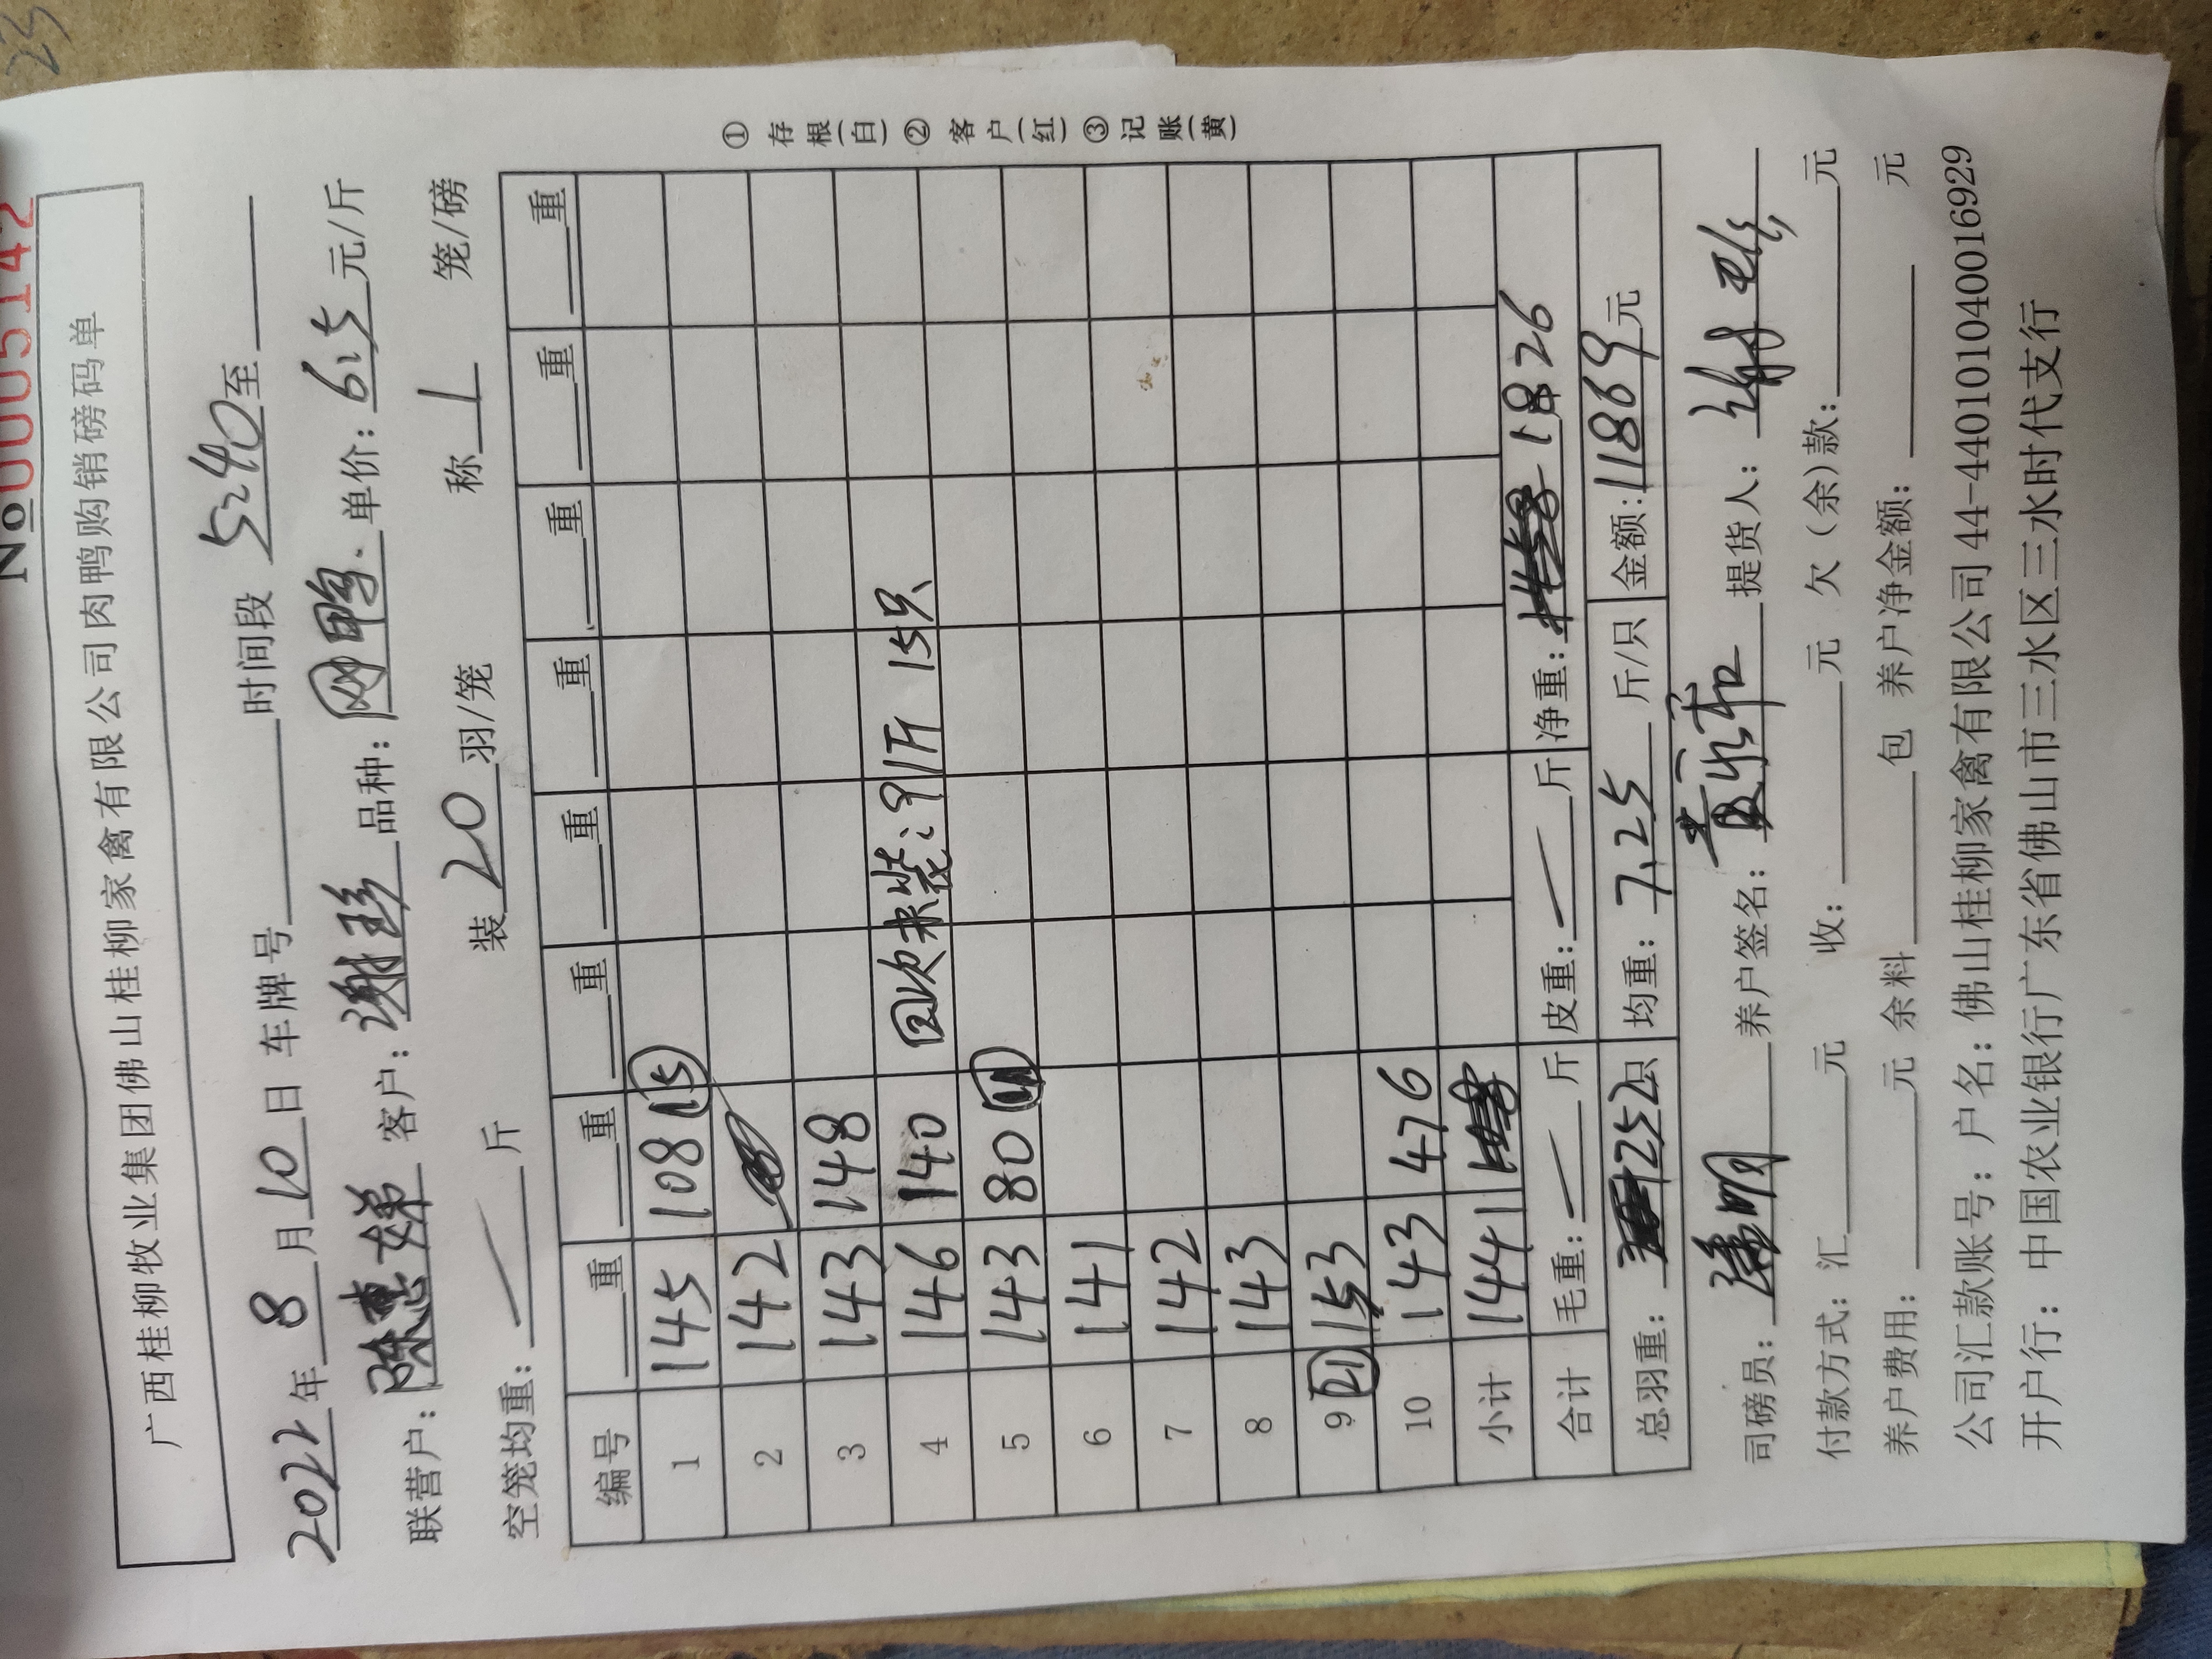 23
№0005142
广西桂柳牧业集团佛山桂柳家禽有限公司肉鸭购销磅码单
2022年8月10日 车牌号 时间段 5:40至
联营户：陈惠娣 客户：谢珍 品种：网鸭 单价：6.5元/斤
空笼均重：/斤 装20羽/笼 称1笼/磅
编号 重 重 重 重 重 重 重 重
1 145 108 15
2 142
3 143 148
4 146 140 回次未装:91斤 15只
5 143 80
6 141
7 142
8 143
9 21 153
10 143 476
小计 1441
合计 毛重：/斤 皮重：/斤 净重：1826
总羽重：252只 均重：7.25斤/只 金额：11869元
司磅员： 养户签名：黄永和 提货人：
付款方式：汇 元 收： 元 欠（余）款： 元
养户费用： 元 余料 包 养户净金额： 元
公司汇款账号：户名：佛山桂柳家禽有限公司 44-440101040016929
开户行：中国农业银行广东省佛山市三水区三水时代支行
①存根(白)②客户(红)③记账(黄)